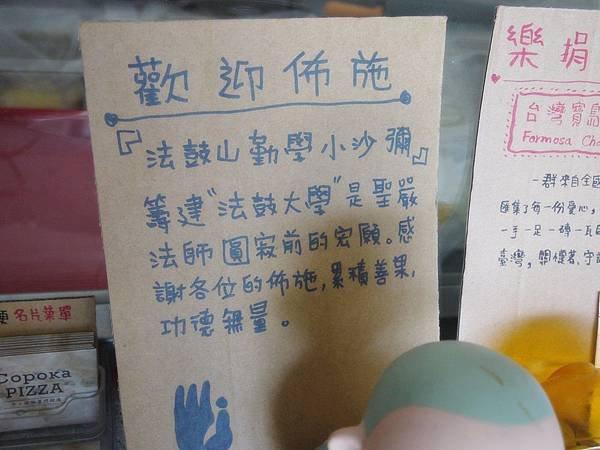 歡迎佈施
『法鼓山勤學小沙彌』
籌建"法鼓大學"是聖嚴
法師圓寂前的宏願。感
謝各位的佈施，累積善果，
功德無量。
樂捐
台灣寶島
Formosa Cha
一群來自全國
匯集了每一份愛心，
一手一足一磚一瓦
臺灣，關懷著、守
名片菜單
Copoka
PIZZA